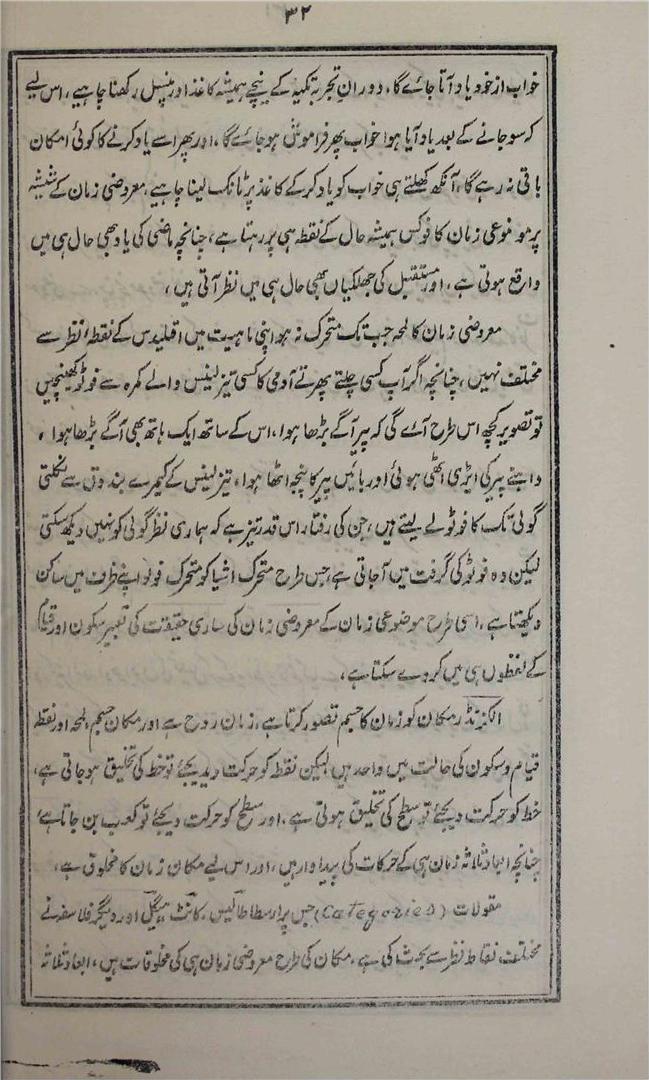 ۳۲
خواب از خود یاد آتا جائے گا، دوران تجربہ تکیہ کے نیچے ہمیشہ کاغذ اور پنسل رکھنا چاہیے، اس لیے
کہ سو جانے کے بعد یاد آیا ہوا خواب پھر فراموش ہو جائے گا، اور پھر اسے یاد کرنے کا کوئی امکان
باقی نہ رہے گا، آنکھ کھلتے ہی خواب کو یاد کرکے کاغذ پر ٹانک لینا چاہیے، معروضی زمان کے شیشہ
پر موضوعی زمان کا فوکس ہمیشہ حال کے نقطہ ہی پر رہتا ہے، چنانچہ ماضی کی یاد بھی حال ہی میں
واقع ہوتی ہے، اور مستقبل کی جھلکیاں بھی حال ہی میں نظر آتی ہیں،
معروضی زمان کا لمحہ جب تک متحرک نہ ہو اپنی ماہیت میں اقلیدس کے نقطہ انظر سے
مختلف نہیں، چنانچہ اگر آپ کسی چلتے پھرتے آدمی کا کسی تیز لینس والے کمرہ سے فوٹو کھینچیں
تو تصویر کچھ اس طرح آئے گی کہ پیر آگے بڑھا ہوا، اس کے ساتھ ایک ہاتھ بھی آگے بڑھا ہوا،
داہنے پیر کی ایڑی اٹھی ہوئی اور بائیں پیر کا پنجہ اٹھا ہوا، تیز لینس کے کیمرے بندوق سے نکلتی
گولی تک کا فوٹو لے لیتے ہیں، جن کی رفتار اس قدر تیز ہے کہ ہماری نظر گولی کو نہیں دیکھ سکتی
لیکن وہ فوٹو کی گرفت میں آجاتی ہے، جس طرح متحرک اشیا کو متحرک فوٹو اپنے ظرف میں ساکن
دیکھتا ہے، اسی طرح موضوعی زمان کے معروضی زمان کی ساری حقیقت کی تعبیر سکون اور قیام
کے لفظوں ہی میں کر دے سکتا ہے،
الکزنڈر مکان کو زمان کا جسم تصور کرتا ہے، زمان روح ہے اور مکان جسم، لمحہ اور نقطہ
قیام و سکون کی حالت میں واحد ہیں لیکن نقطہ کو حرکت دیدیجئے تو خط کی تخلیق ہو جاتی ہے،
خط کو حرکت دیجئے تو سطح کی تخلیق ہوتی ہے، اور سطح کو حرکت دیجئے تو مکعب بن جاتا ہے،
چنانچہ ابعاد ثلاثہ زمان ہی کے حرکات کی پیداوار ہیں، اور اس لیے مکان زمان کا مخلوق ہے،
مقولات (Categories) جس پر ارسطاطالیس، کانٹ ہیگل اور دیگر فلاسفہ نے
مختلف نقاط نظر سے بحث کی ہے، مکان کی طرح معروضی زمان ہی کی مخلوقات ہیں، ابعاد ثلاثہ